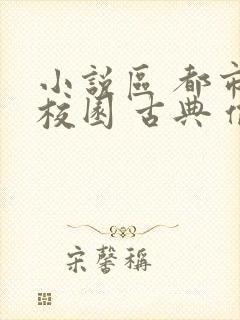 小說區 都市
校園 古典
宋馨稱